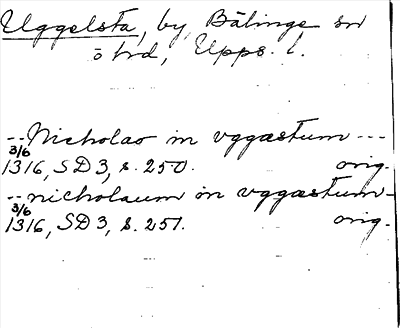 Uggelsta, by, Bälinge sn
ö hd, Upps. l.
-- Nicholao in vggastum ---
3/6
1316, SD 3, s. 250. orig.
-- nicholaum in vggastum -
3/6
1316, SD 3, s. 251. orig.